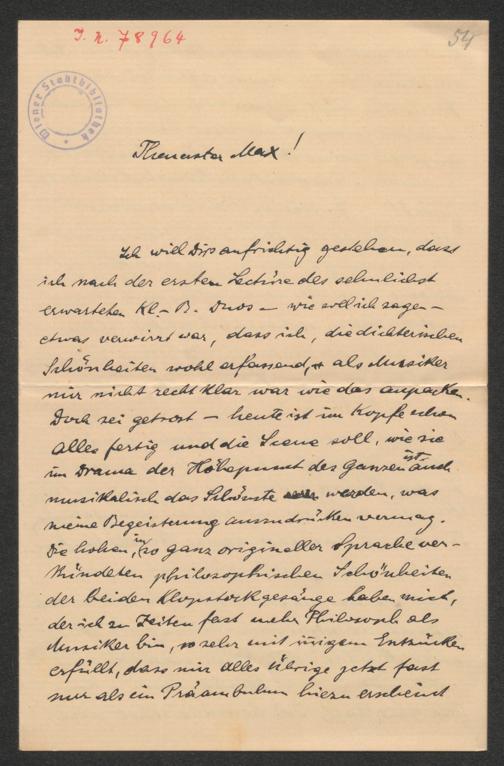 J. N. 78964
54
Wiener Stadtbibliothek
Theuerster Max!
Ich will Dir's aufrichtig gestehen, dass
ich nach der ersten Lectüre des sehnlichst
erwarteten Kl.-B. Duos – wie soll ich sagen –
etwas verwirrt war, dass ich, die dichterischen
Schönheiten wohl erfassend, als Musiker
mir nicht recht klar war wie das anpacken.
Doch sei getrost – heute ist im Kopfe schon
alles fertig und die Scene soll, wie sie
im Drama der Höhepunkt des Ganzen ist, auch
musikalisch das Schönste werden, was
meine Begeisterung auszudrücken vermag.
Die hohen, in so ganz origineller Sprache ver-
kündeten philosophischen Schönheiten
der beiden Klopstockgesänge haben mich,
der ich zu Zeiten fast mehr Philosoph als
Musiker bin, so sehr mit innigem Entzücken
erfüllt, dass mir alles Übrige jetzt fast
nur als ein Präambulum hiezu erscheint